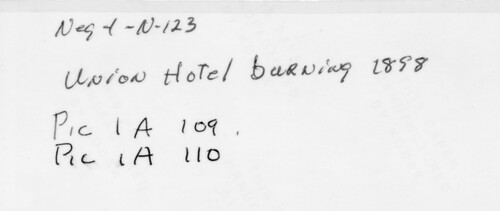 Neg-1-N-123
Union Hotel burning 1898
Pic 1A 109.
Pic 1A 110